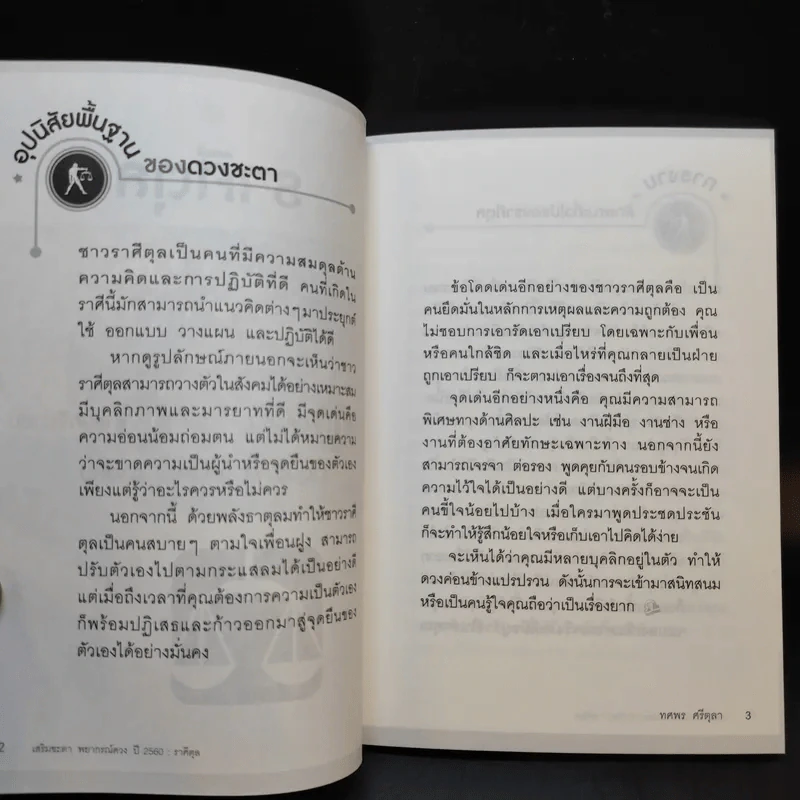 อุปนิสัยพื้นฐาน
ของดวงชะตา
ชาวราศีตุลเป็นคนที่มีความสมดุลด้าน
ความคิดและการปฏิบัติที่ดี คนที่เกิดใน
ราศีนี้มักสามารถนำแนวคิดต่างๆ มาประยุกต์
ใช้ ออกแบบ วางแผน และปฏิบัติได้ดี
หากดูรูปลักษณ์ภายนอกจะเห็นว่าชาว
ราศีตุลสามารถวางตัวในสังคมได้อย่างเหมาะสม
มีบุคลิกภาพและมารยาทที่ดี มีจุดเด่นคือ
ความอ่อนน้อมถ่อมตน แต่ไม่ได้หมายความ
ว่าจะขาดความเป็นผู้นำหรือจุดยืนของตัวเอง
เพียงแต่รู้ว่าอะไรควรหรือไม่ควร
นอกจากนี้ ด้วยพลังธาตุลมทำให้ชาวราศี
ตุลเป็นคนสบายๆ ตามใจเพื่อนฝูง สามารถ
ปรับตัวเองไปตามกระแสลมได้เป็นอย่างดี
แต่เมื่อถึงเวลาที่คุณต้องการความเป็นตัวเอง
ก็พร้อมปฏิเสธและก้าวออกมาสู่จุดยืนของ
ตัวเองได้อย่างมั่นคง
2 เสริมชะตา พยากรณ์ดวง ปี 2560 : ราศีตุล
ข้อโดดเด่นอีกอย่างของชาวราศีตุลคือ เป็น
คนยึดมั่นในหลักการเหตุผลและความถูกต้อง คุณ
ไม่ชอบการเอารัดเอาเปรียบ โดยเฉพาะกับเพื่อน
หรือคนใกล้ชิด และเมื่อไหร่ที่คุณกลายเป็นฝ่าย
ถูกเอาเปรียบ ก็จะตามเอาเรื่องจนถึงที่สุด
จุดเด่นอีกอย่างหนึ่งคือ คุณมีความสามารถ
พิเศษทางด้านศิลปะ เช่น งานฝีมือ งานช่าง หรือ
งานที่ต้องอาศัยทักษะเฉพาะทาง นอกจากนี้ยัง
สามารถเจรจา ต่อรอง พูดคุยกับคนรอบข้างจนเกิด
ความไว้ใจได้เป็นอย่างดี แต่บางครั้งก็อาจจะเป็น
คนขี้ใจน้อยไปบ้าง เมื่อใครมาพูดประชดประชัน
ก็จะทำให้รู้สึกน้อยใจหรือเก็บเอาไปคิดได้ง่าย
จะเห็นได้ว่าคุณมีหลายบุคลิกอยู่ในตัว ทำให้
ดวงค่อนข้างแปรปรวน ดังนั้นการจะเข้ามาสนิทสนม
หรือเป็นคนรู้ใจคุณถือว่าเป็นเรื่องยาก
ทศพร ศรีตุลา 3